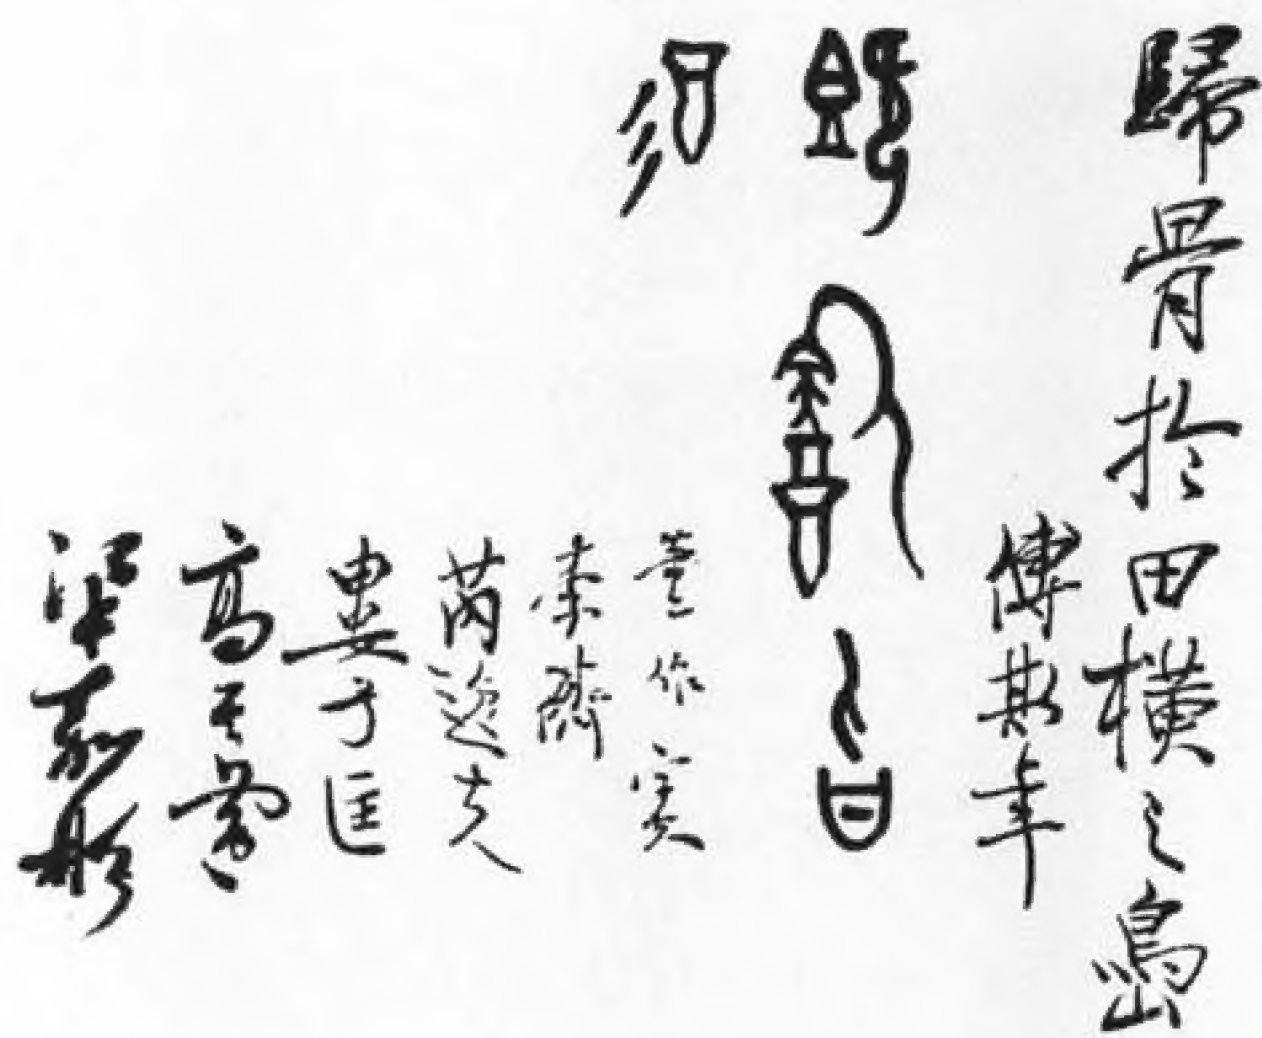 歸骨於田橫之島
傅斯年
董作賓
李濟
芮逸夫
婁子匡
高去尋
梁嘉彬